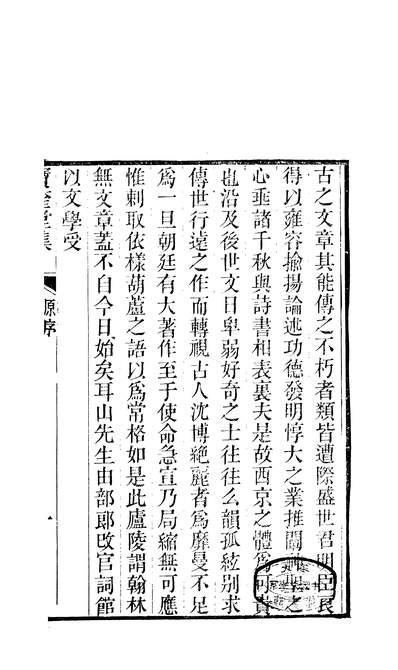 古之文章其能傳之不朽者類皆遭際盛世君明臣良
得以雍容揄揚論述功德發明惇大之業推闡之
心垂諸千秋與詩書相表裏夫是故西京之體為可貴
也沿及後世文日卑弱好奇之士往往么韻孤絃别求
傳世行遠之作而轉視古人沈博絶麗者為靡曼不足
為一旦朝廷有大著作至于使命急宣乃局縮無可應
惟剌取依樣葫蘆之語以為常格如是此廬陵謂翰林
無文章蓋不自今日始矣耳山先生由部郎改官詞館
以文學受
寶奎堂集
原序